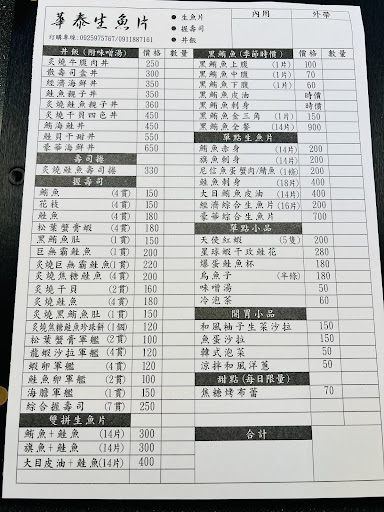 華泰生魚片
訂購專線:0925975767/0911887161
●生魚片
●握壽司
●丼飯
內用 外帶
丼飯(附味噌湯) 價格 數量
炙燒牛腹肉丼 250
散壽司盒丼 300
經濟海鮮丼 350
鮭魚親子丼 350
炙燒鮭魚親子丼 360
炙燒干貝四色丼 450
鮪海鮭丼 450
鮭貝干甜丼 550
豪華海鮮丼 650
壽司捲
炙燒鮭魚壽司捲 330
握壽司
鮪魚 (4貫) 150
花枝 (4貫) 150
鮭魚 (4貫) 180
松葉蟹膏蝦 (4貫) 180
黑鮪魚肚 (1貫) 150
巨無霸鮭魚 (2貫) 200
炙燒巨無霸鮭魚(2貫) 220
炙燒焦糖鮭魚 (4貫) 200
炙燒干貝 (2貫) 160
炙燒鮭魚 (4貫) 180
炙燒黑鮪魚肚 (1貫) 150
炙燒焦糖鮭魚珍珠餅(1個) 120
松葉蟹膏軍艦 (2貫) 100
龍蝦沙拉軍艦 (2貫) 100
蝦卵軍艦 (2貫) 100
鮭魚卵軍艦 (2貫) 180
海膽軍艦 (1貫) 150
綜合握壽司 (7貫) 250
雙拼生魚片
鮪魚+鮭魚 (14片) 300
旗魚+鮭魚 (14片) 300
大目皮油+鮭魚(14片) 400
黑鮪魚(季節時價) 價格 數量
黑鮪魚上腹 (1片) 100
黑鮪魚中腹 (1片) 70
黑鮪魚下腹 (1片) 60
黑鮪魚皮油 時價
黑鮪魚刺身 時價
黑鮪魚金三角 (1片) 150
黑鮪魚全餐 (14片) 900
單點生魚片
鮪魚赤身 (14片) 200
旗魚刺身 (14片) 200
尼信魚蛋蟹肉/鯡魚(1條) 200
鮭魚刺身 (18片) 400
大目鮪魚皮油 (14片) 400
經濟綜合生魚片(16片) 200
豪華綜合生魚片 700
單點小品
天使紅蝦 (5隻) 200
星球蝦干玫鮭花 380
爆蛋鮭魚杯 180
烏魚子 (半條) 180
味噌湯 50
冷泡茶 60
開胃小品
和風柚子生菜沙拉 50
魚蛋沙拉 50
韓式泡菜 50
涼拌和風洋蔥 50
甜點(每日限量)
焦糖烤布蕾 70
合計